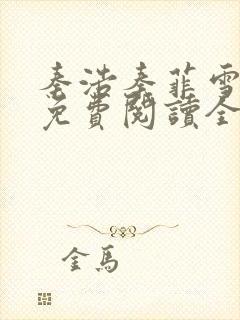 秦浩秦菲雪
免費閱讀全
金馬